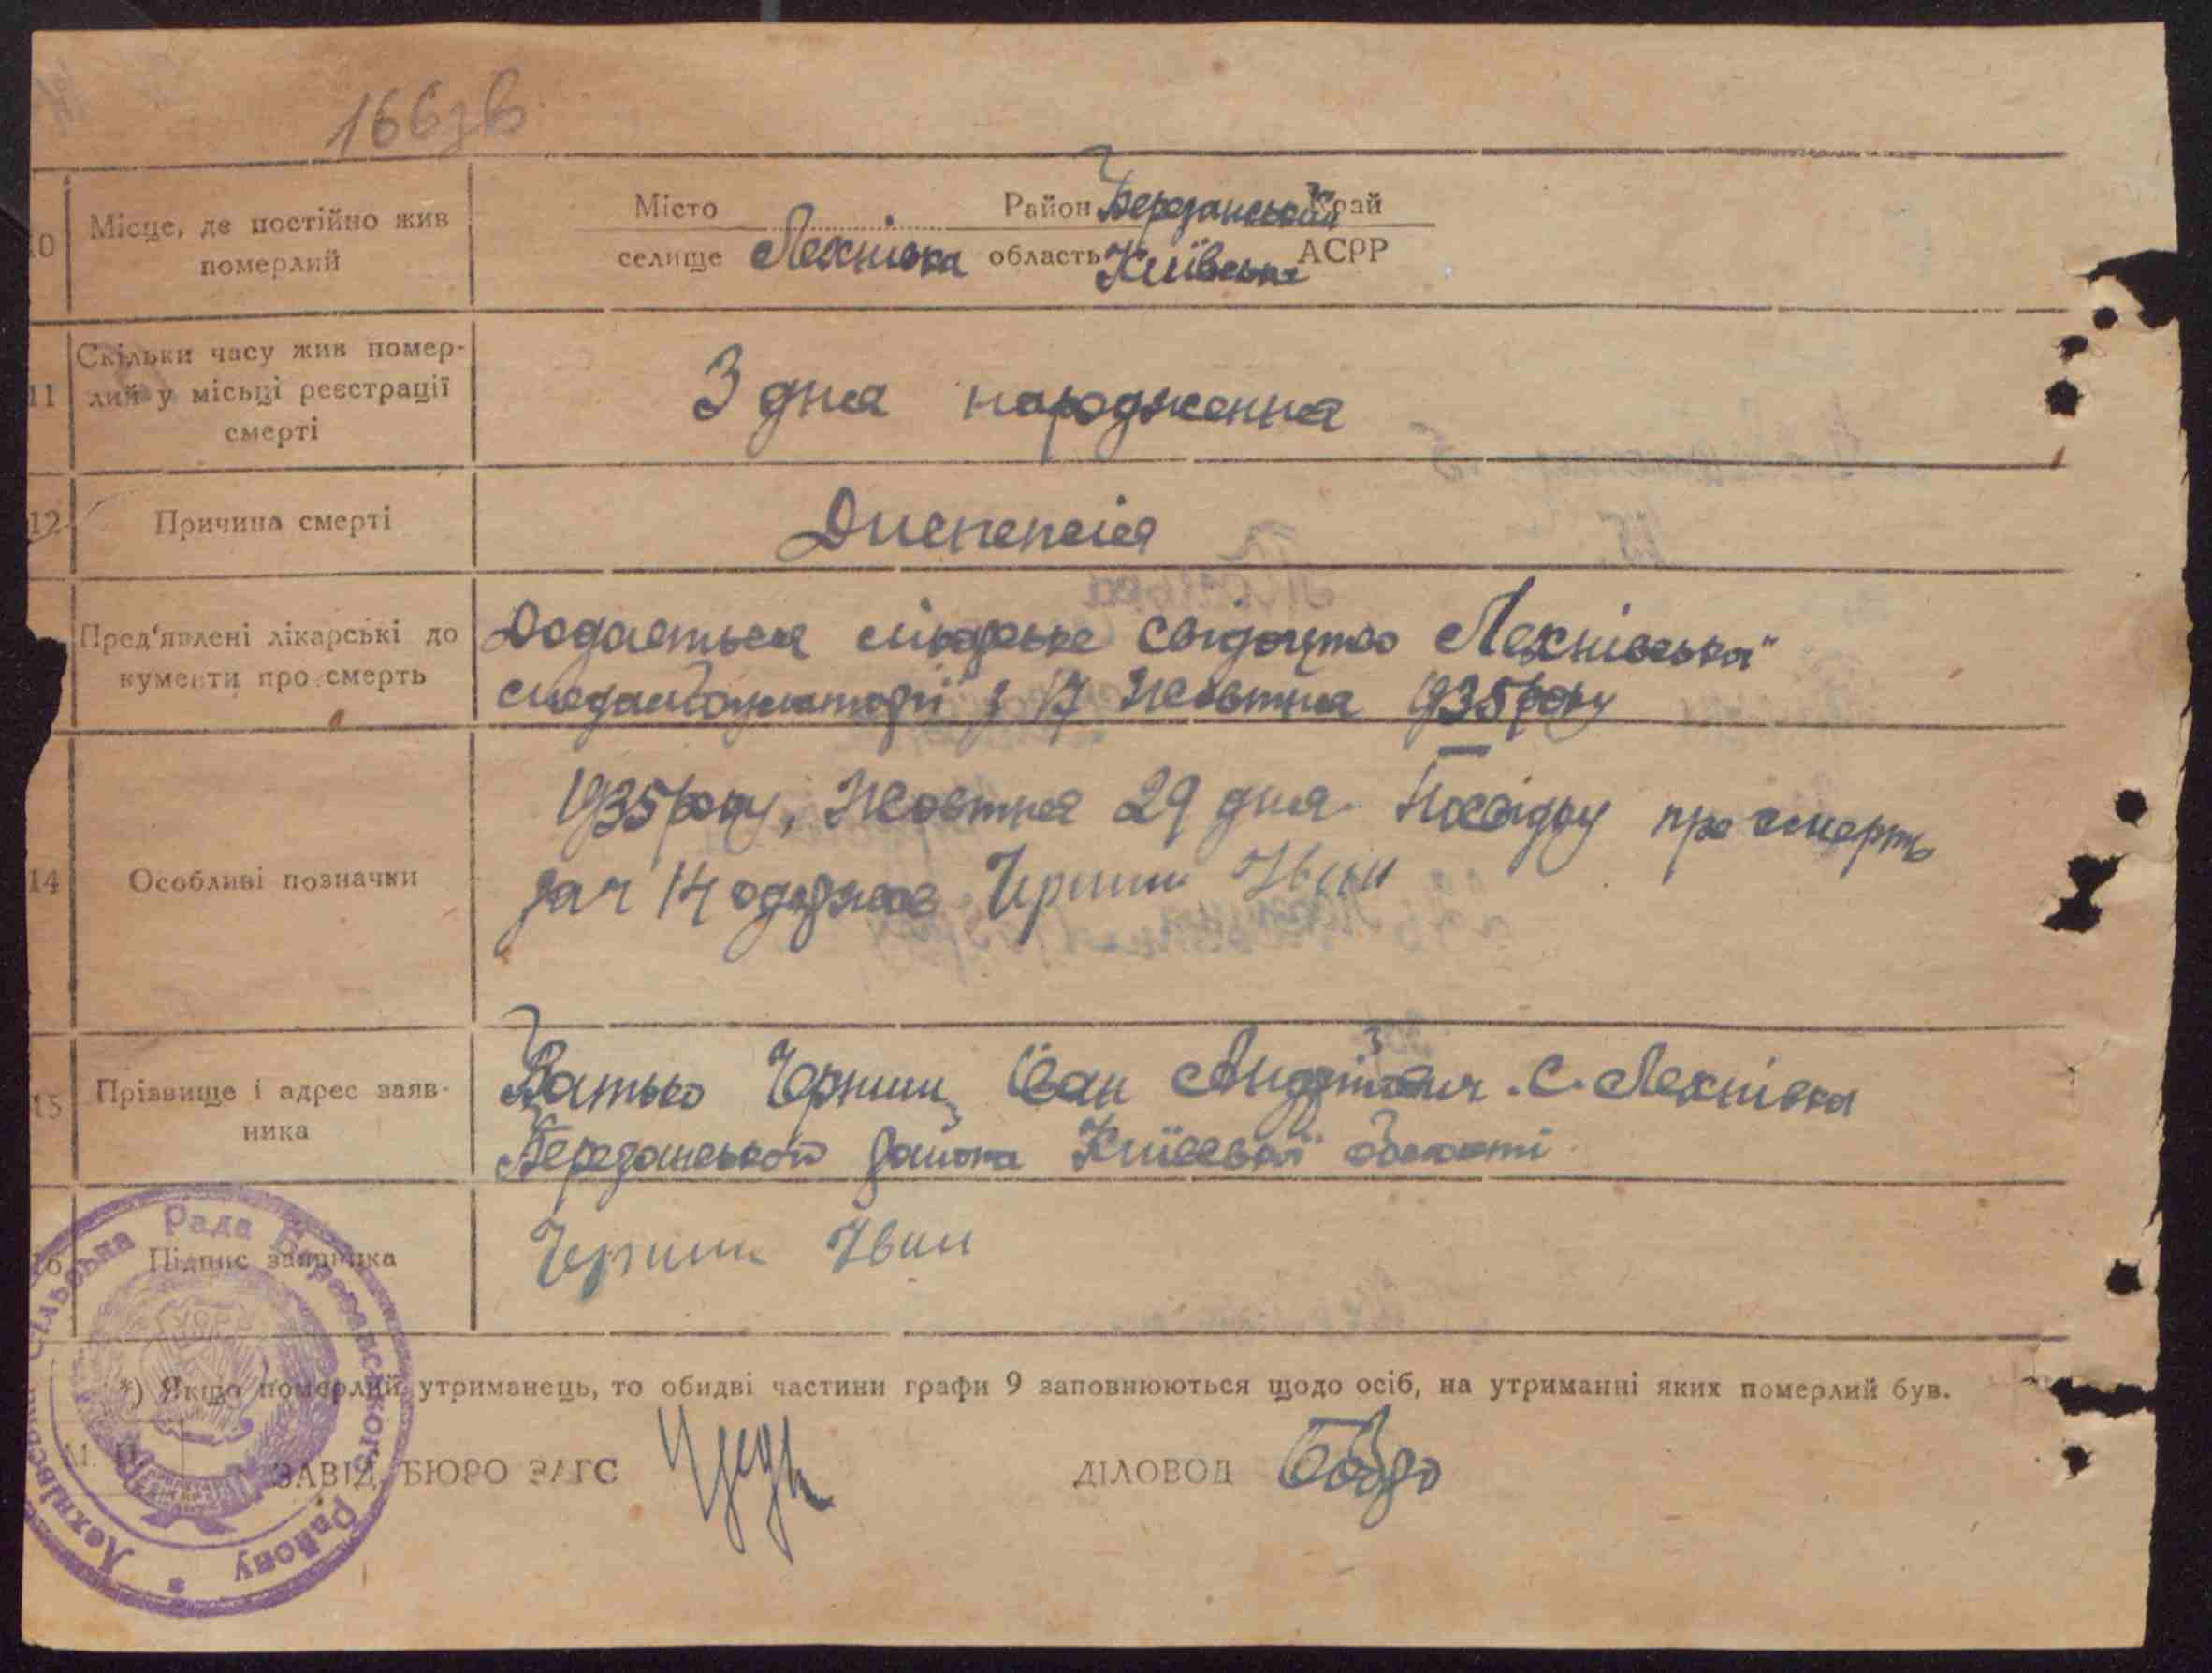 166зв
10 Місце, де постійно жив померлий
Місто Район Березанський Край
селище Лехнівка область Київська АСРР
11 Скільки часу жив помер-
лий у місьці реєстрації
смерті
З дня народження
12 Причина смерті
Диспепсія
Пред'явлені лікарські до
кументи про смерть
Додається лікарське свідоцтво Лехнівської
медамбулаторії з 17 Жовтня 1935 року
14 Особливі позначки
1935 року, Жовтня 29 дня Посвідку про смерть
за ч 14 одержав Черниш Іван
15 Прізвище і адрес заяв-
ника
Батько Черниш Іван Андрійович. С. Лехнівка
Березанського району Київської області
16 Підпис заявника
Черниш Иван
*) Якщо померлий утриманець, то обидві частини графи 9 заповнюються щодо осіб, на утриманні яких померлий був.
М. П.
ЗАВІД. БЮРО ЗАГС ДІЛОВОД
Лехнівська Сільська Рада Березанського Району
УСРР